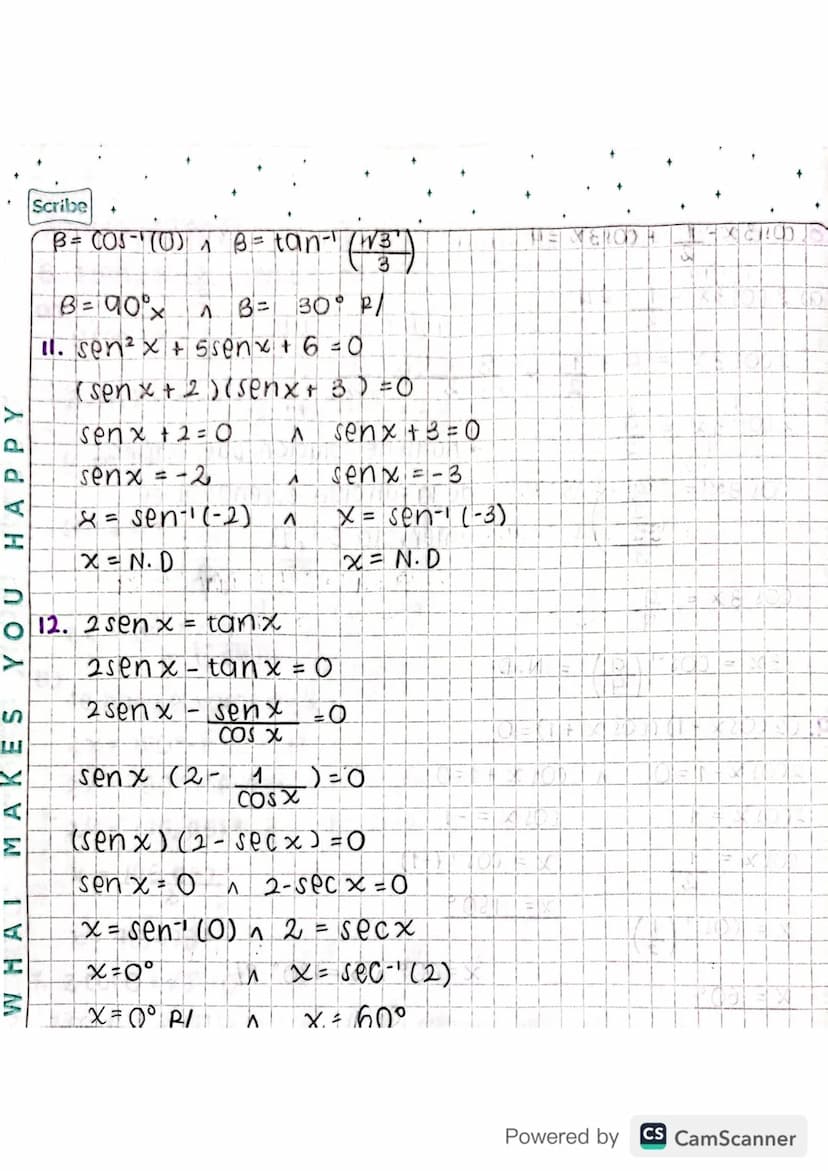 Scribe
β = cos⁻¹(0) ∧ β = tan⁻¹ (√3/3)
β = 90°x ∧ β = 30° R/
11. sen² x + 5senx + 6 = 0
(senx + 2)(senx + 3) = 0
senx + 2 = 0 ∧ senx + 3 = 0
senx = -2 ∧ senx = -3
x = sen⁻¹(-2) ∧ x = sen⁻¹(-3)
x = N.D x = N.D
12. 2senx = tanx
2senx - tanx = 0
2senx - senx/cos x = 0
senx (2 - 1/cosx) = 0
(senx)(2 - secx) = 0
senx = 0 ∧ 2-sec x = 0
x = sen⁻¹(0) ∧ 2 = secx
x = 0° ∧ x = sec⁻¹(2)
x = 0° R/ ∧ x = 60°
WHAT MAKES YOU HAPPY
Powered by CS CamScanner